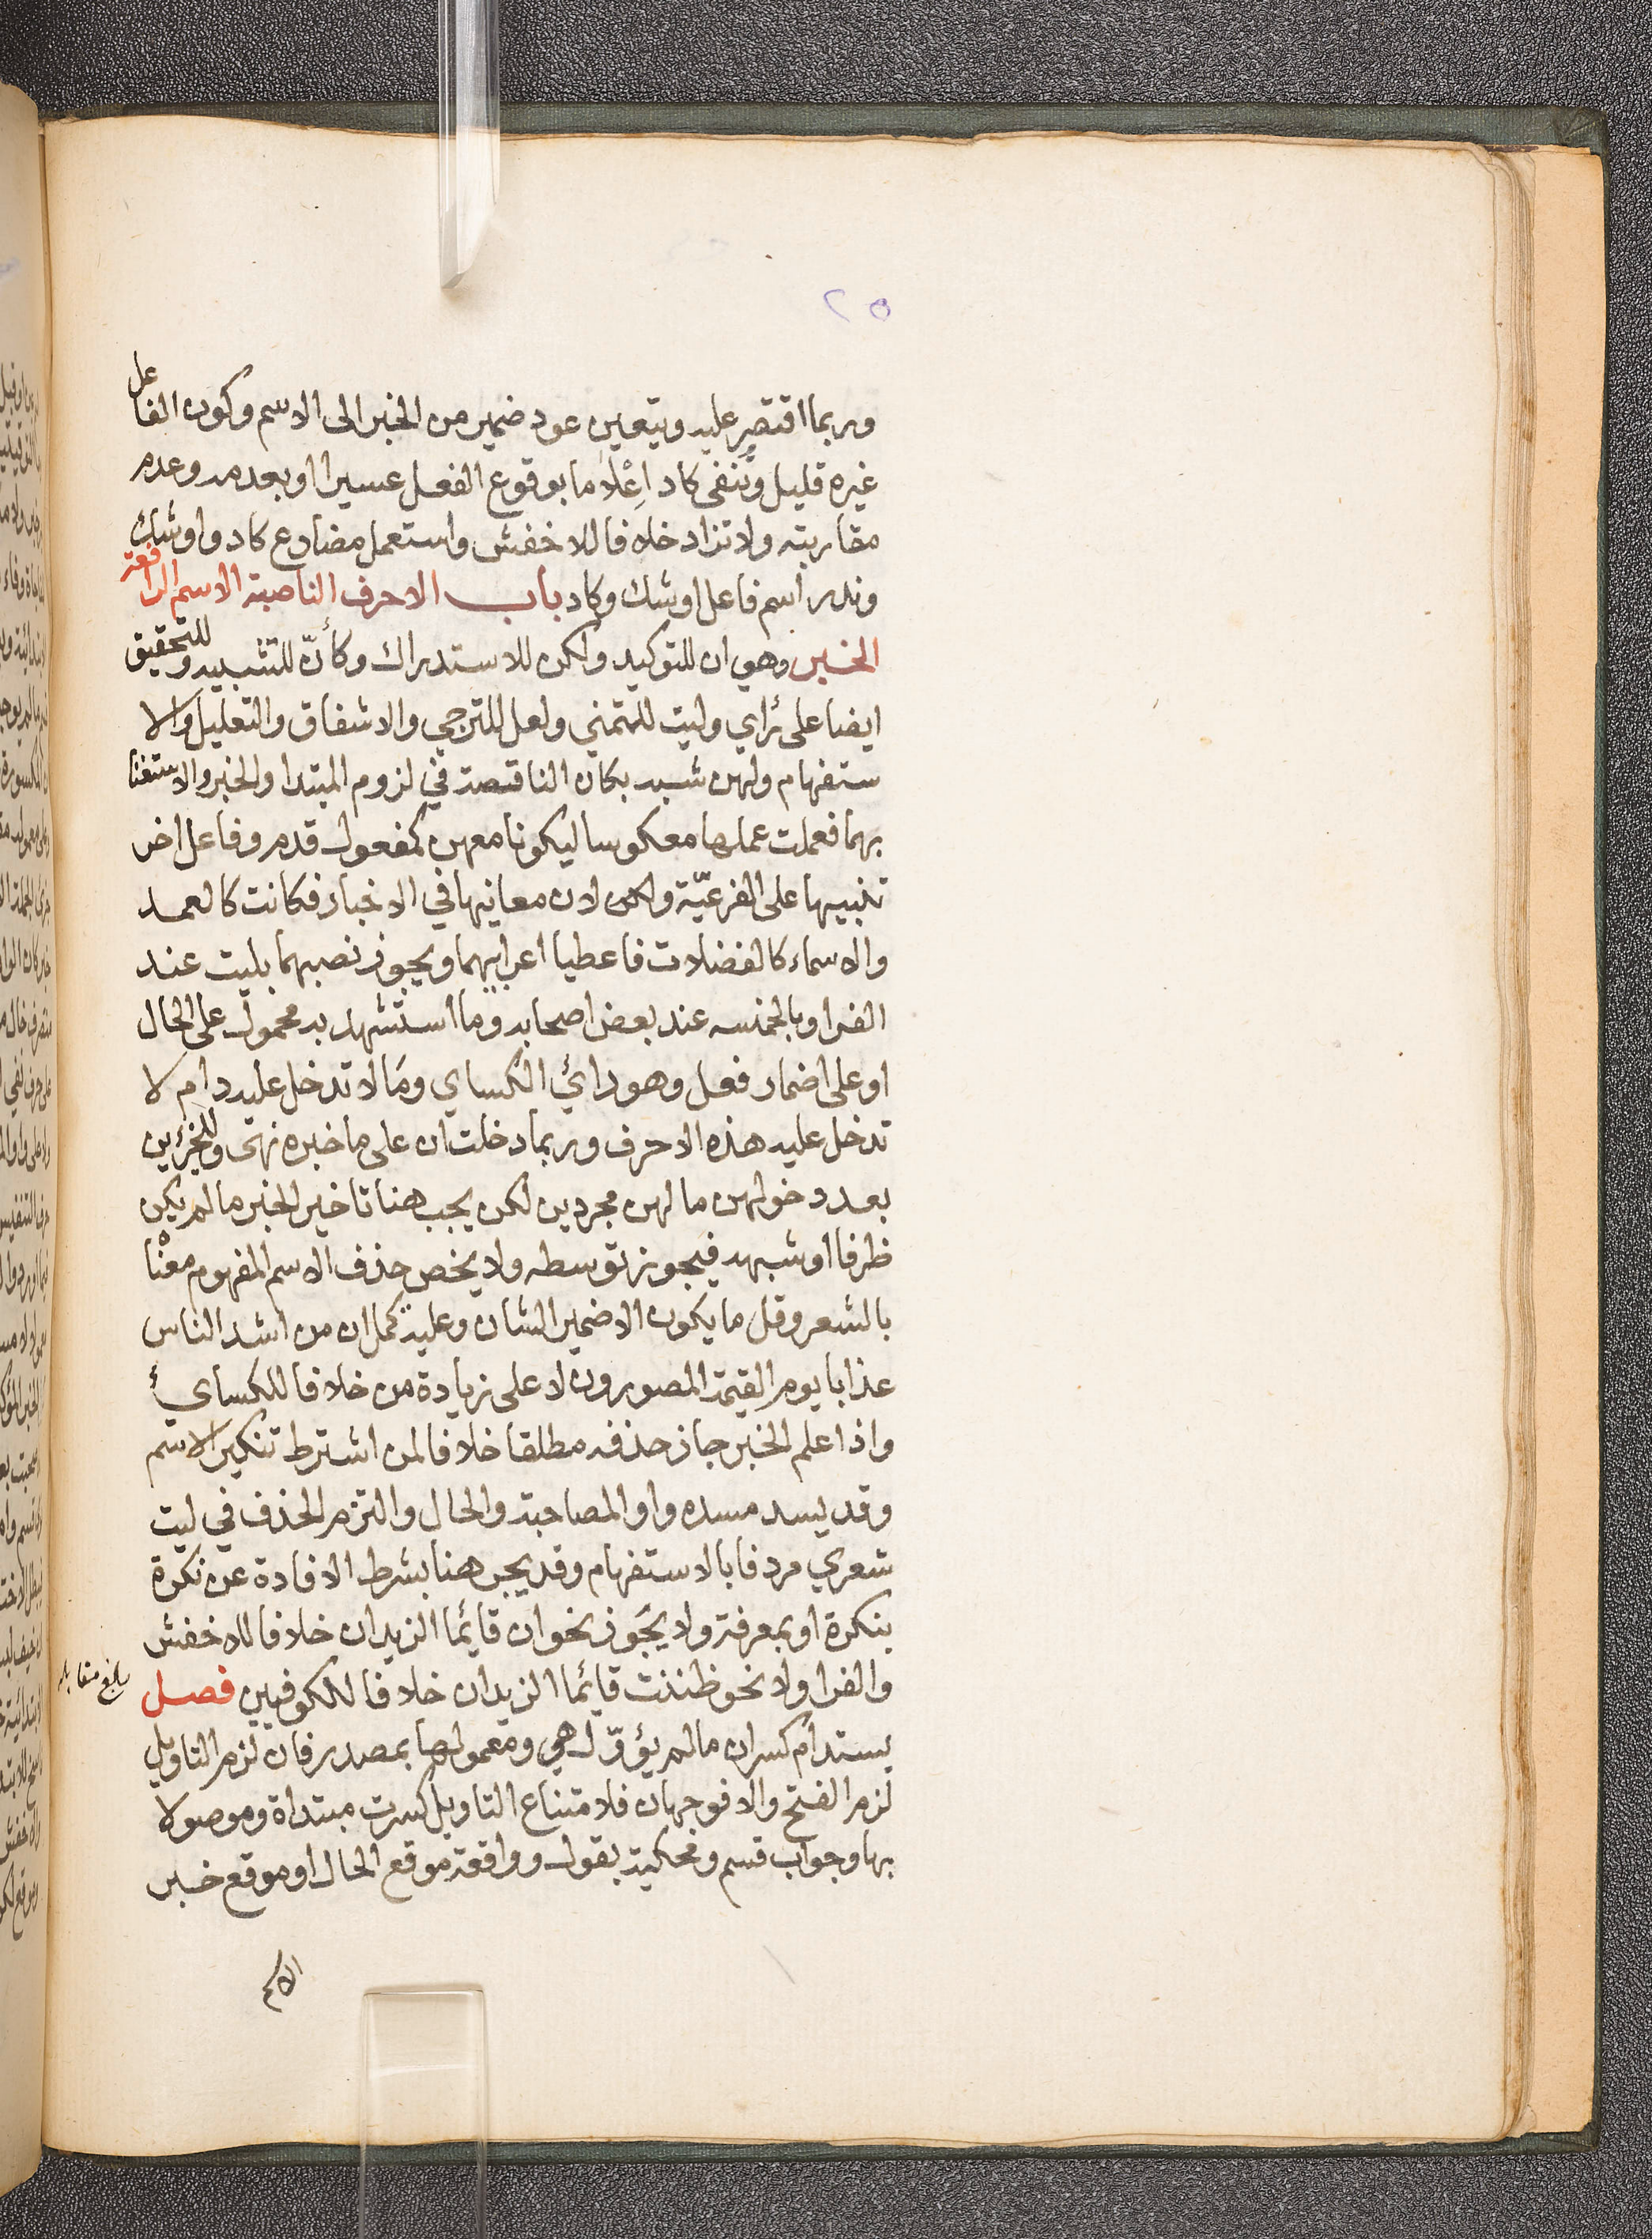 ٢٥
وربما اقتصر عليه ويتعين عود ضمير من الخبر الى الاسم وكون الفاعل
غيره قليل وتنفى كاد اِعْلاما بوقوع الفعل عسيرا او بعدمه وعدم
مقاربته ولا تزاد خلافا للاخفش واستعمل مضارع كاد واوشك
وندر اسم فاعل اوشك وكاد باب الاحرف الناصبة الاسم الرافعة
الخبر وهي ان للتوكيد ولكن للاستدراك وكأنّ للتشبيه وللتحقيق
ايضا على رأي وليت للتمني ولعل للترجي والاشفاق والتعليل والا
ستفهام ولهن شبه بكان الناقصة في لزوم المبتدا والخبر والاستغنا
بهما فعملت عملها معكوسا ليكونا معهن كمفعول قدم وفاعل اخر
تنبيها على الفرعيّة ولكن لان معانيها في الاخبار فكانت كالعمد
والاسماء كالفضلات فاعطيا اعرابيهما ويجوز نصبهما بليت عند
الفرا وبالخمسه عند بعض اصحابه وما استشهد به محمول على الحال
او على اضمار فعل وهو رائ الكساي ومَا لا تدخل عليه دام لا
تدخل عليه هذه الاحرف وربما دخلت ان على ما خبره نهى وللجزئين
بعد دخولهن ما لهن مجردين لكن يجب هنا تاخير الخبر ما لم يكن
ظرفا او شبهه فيجوز توسطه ولا يخص حذف الاسم المفهوم معنْا
بالشعر وقل ما يكون الا ضمير الشان وعليه يحمل ان من اشد الناس
عذابا يوم القيمة المصورون لا على زيادة من خلافا للكسائي
واذا علم الخبر جاز حذفه مطلقا خلافا لمن اشترط تنكير الاسم
وقد يسد مسده واو المصاحبة والحال والتزم الحذف في ليت
شعري مردفا بالاستفهام وقد يخبر هنا بشرط الافادة عن نكرة
بنكرة او بمعرفة ولا يجَوز نحو ان قائما الزيدان خلافا للاخفش
والفرا ولا نحو ظننت قائما الزيدان خلافا للكوفيين فصل
بلغ مقابلة
يستدام كسر ان ما لم يؤوّل هي ومعمولها بمصدر فان لزم التاويل
لزم الفتح والا فوجهان فلامتناع التاويل كسرت مبتداة وموصولا
بها وجواب قسم ومحكية بقول وواقعة موقع الحال او موقع خبر